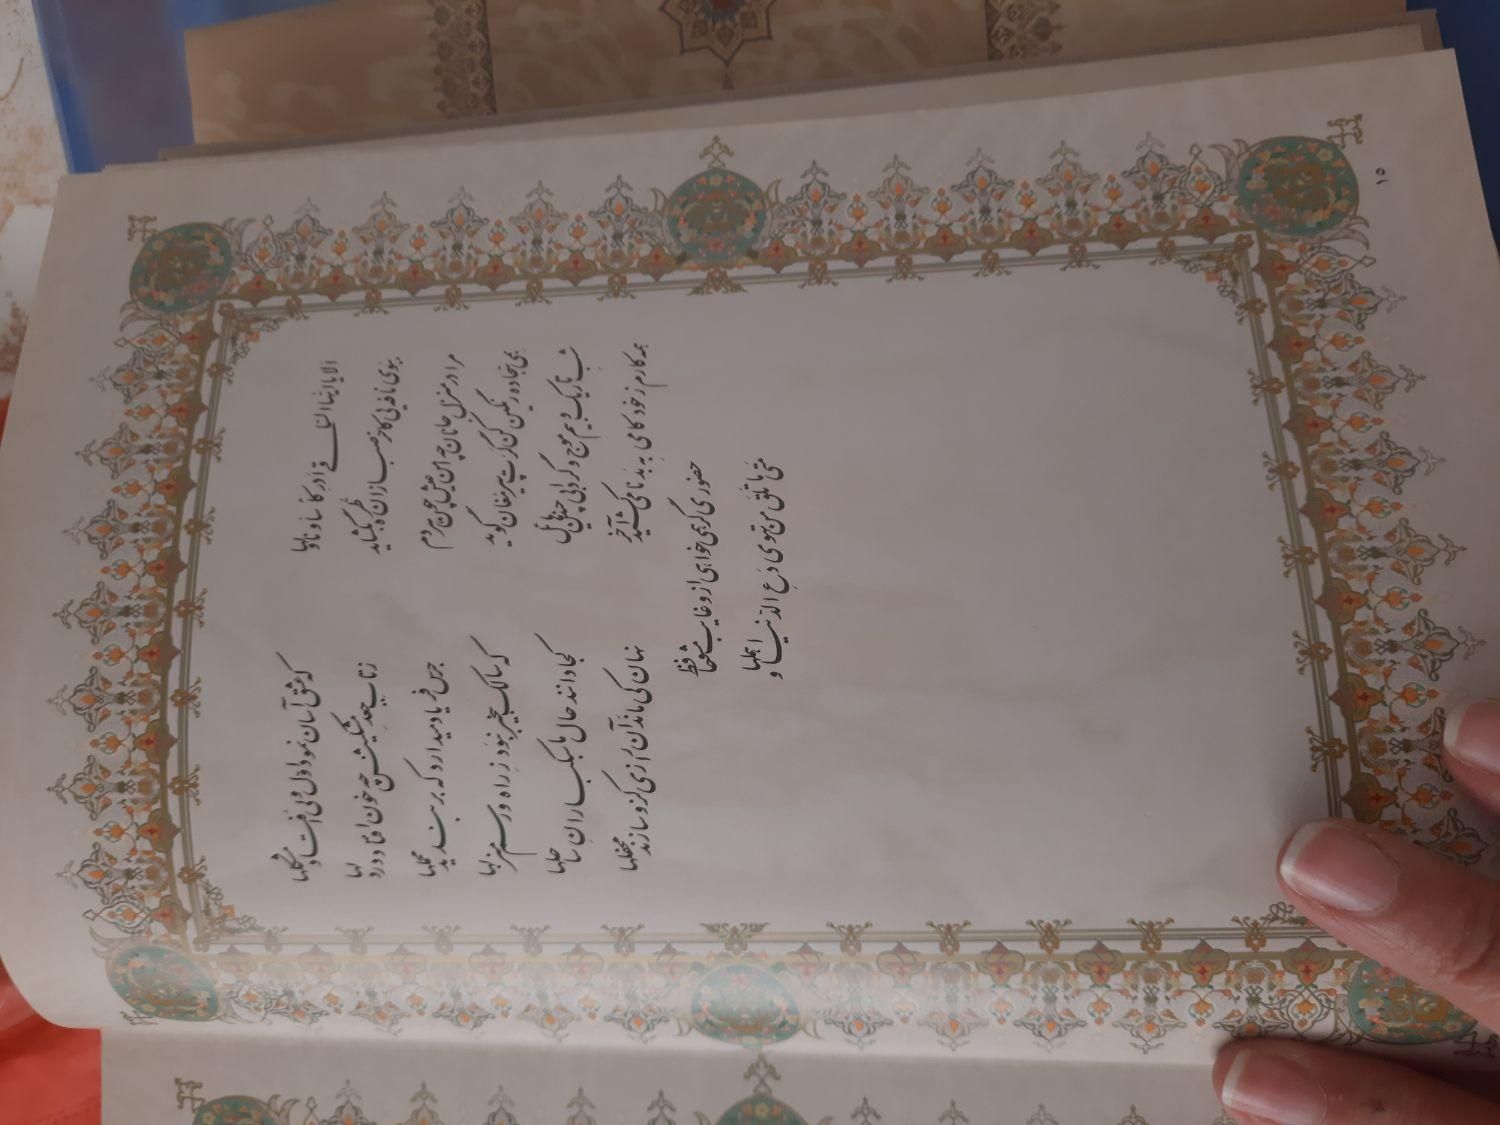 ۱۵
الا یا ایها الساقی ادر کأسا و ناولها
که عشق آسان نمود اول ولی افتاد مشکلها
ببوی نافه‌یی کاخر صبا زان طره بگشاید
ز تاب جعد مشکینش چه خون افتاد در دلها
مرا در منزل جانان چه امن عیش چون هر دم
جرس فریاد میدارد که بربندید محملها
بمی سجاده رنگین کن گرت پیر مغان گوید
که سالک بیخبر نبود ز راه و رسم منزلها
شب تاریک و بیم موج و گردابی چنین هایل
کجا دانند حال ما سبکباران ساحلها
همه کارم ز خود کامی به بدنامی کشید آخر
نهان کی ماند آن رازی کزو سازند محفلها
حضوری گر همی خواهی ازو غایب مشو حافظ
متی ما تلق من تهوی دع الدنیا و اهملها